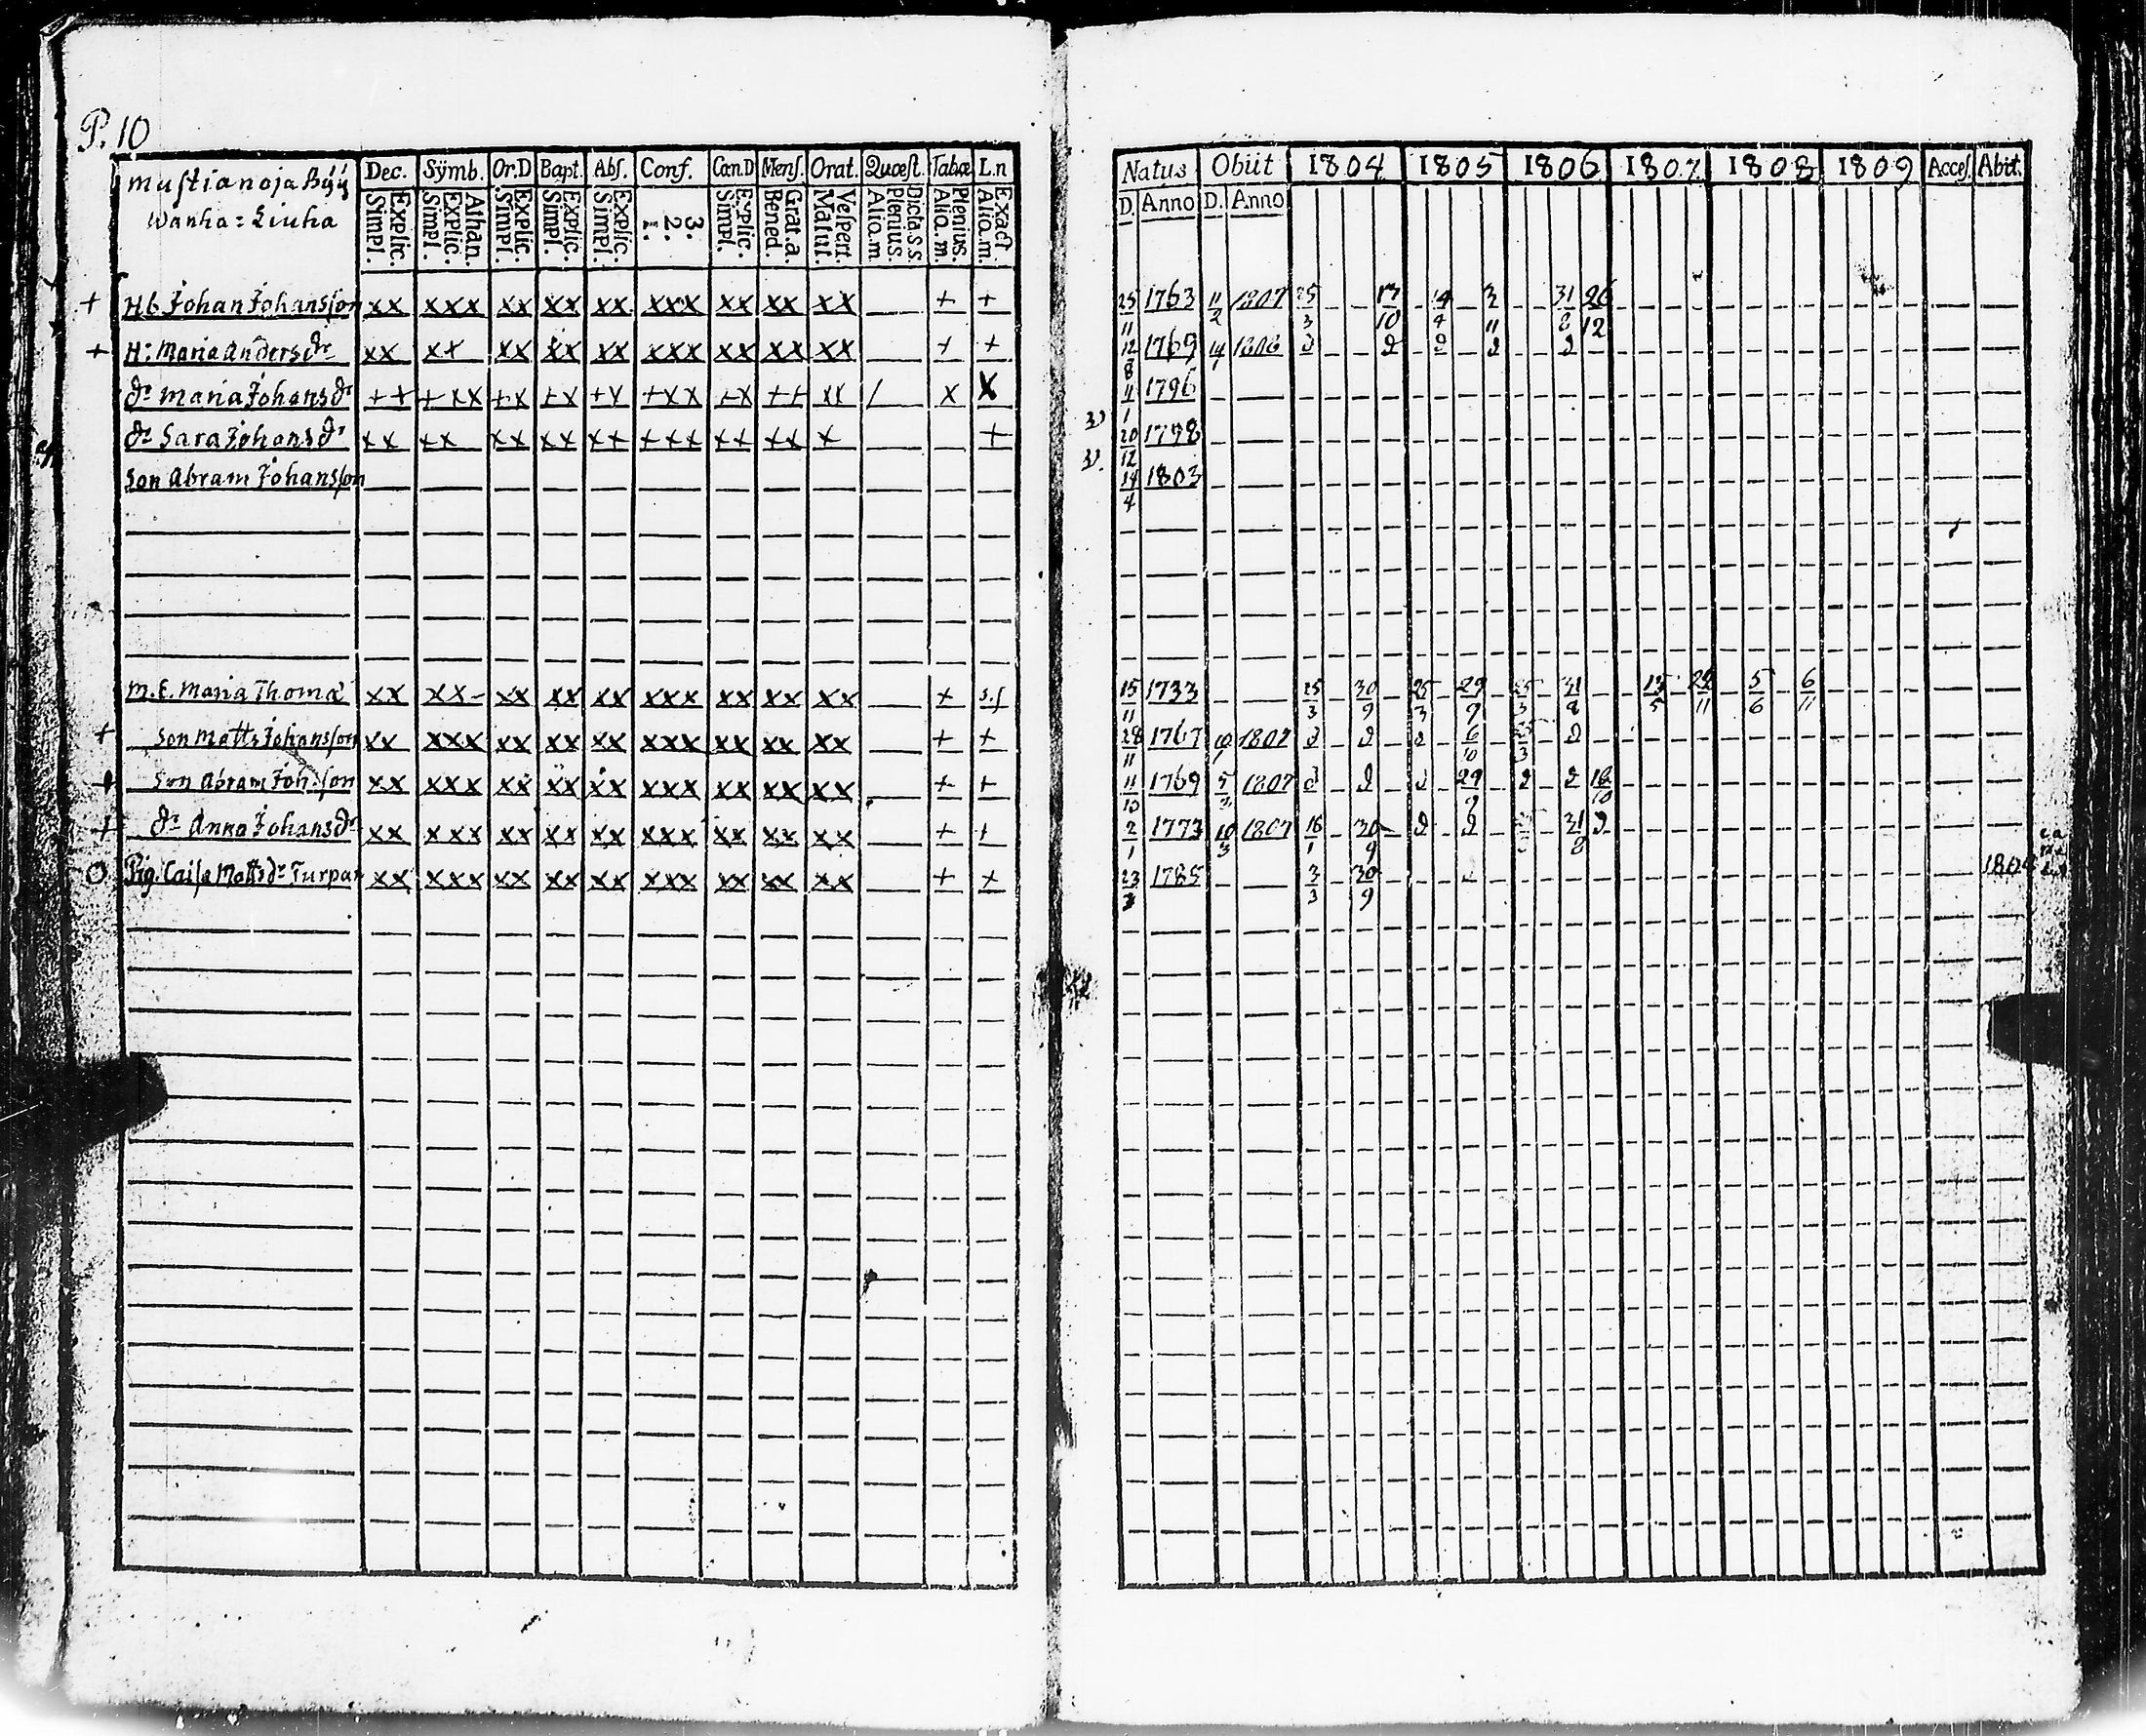 P. 10
Mustianoja Býÿ
Wanha=Liuha
Dec. Sÿmb. Or.D Bapt. Abs. Conf. Cœn.D Mens. Orat. Quæst. Tabæ L.n
Explic. Simpl. Athan. Explic. Simpl. Explic. Simpl. Explic. Simpl. Explic. Simpl. 3. 2. 1. Explic. Simpl. Grat.a. Bened. Vespert. Matut. Dicta S.S. Plenius. Aliq.m Plenius. Aliq.m. Exact Aliq.m.
Natus Obiit 1804 1805 1806 1807 1808 1809 Acces. Abit.
D. Anno D. Anno
+ Hb. Johan Johansson xx xxx xx xx xx xxx xx xx xx + + 25/11 1763 11/2 1807 25/3 17/10 14/4 31/8 26/12
+ H: Maria Andersdr xx x+ xx xx xx xxx xx xx xx + + 12/8 1769 1808
dr Maria Johansdr ++ +xx +x +x +x +xx +x ++ xx / x x 11/1 1796
dr Sara Johansdr xx ++ xx xx ++ +++ ++ ++ + + 20/12 1798
Son Abram Johansson 14/4 1803
M. E. Maria Thomæ xx xx- xx xx xx xxx xx xx xx + s.s 15/11 1733 25/3 30/9 25/3 29/9 25/3 31/8 5/6 6/11
+ Son Matts Johansson xx xxx xx xx xx xxx xx xx xx + + 28/11 1767 1807 6/10 25/3
+ Son Abram Joh:son xx xxx xx xx xx xxx xx xx xx + + 11/10 1769 1807 29/9
+ dr Anna Johansdr xx xxx xx xx xx xxx xx xx xx + + 2/1 1773 10/3 1807 16/1 30/9 31/8
O Pig. Caisa Mattsdr Turpan xx xxx xx xx xx xxx xx xx xx + x 23/3 1785 3/3 30/9